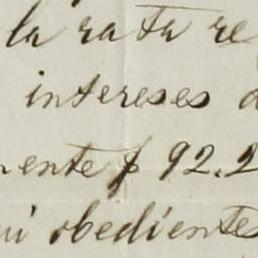 la rata re
intereses
mente $ 92.2
obedientes